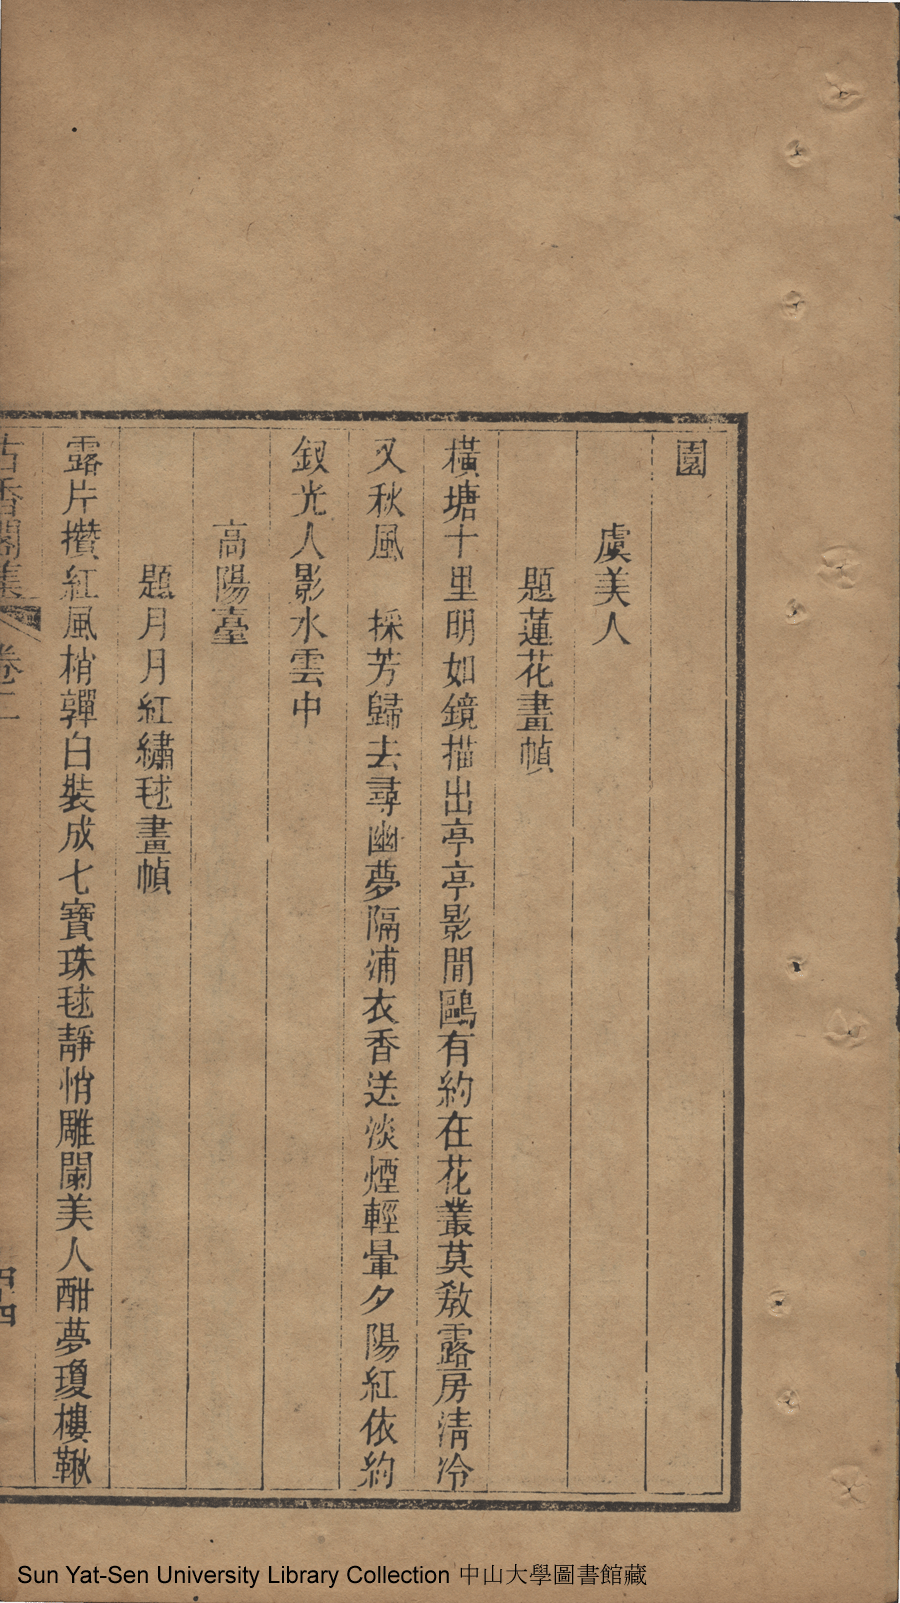 園
虞美人
題蓮花畫幀
橫塘十里明如鏡描出亭亭影閒鷗有約在花叢莫教露房淸冷
又秋風　採芳歸去尋幽夢隔浦衣香送淡煙輕暈夕陽紅依約
釵光人影水雲中
高陽臺
題月月紅繡毬畫幀
露片攢紅風梢嚲白裝成七寶珠毬靜悄雕闌美人酣夢瓊樓鞦
古香閣集　卷二　四
Sun Yat-Sen University Library Collection 中山大學圖書館藏